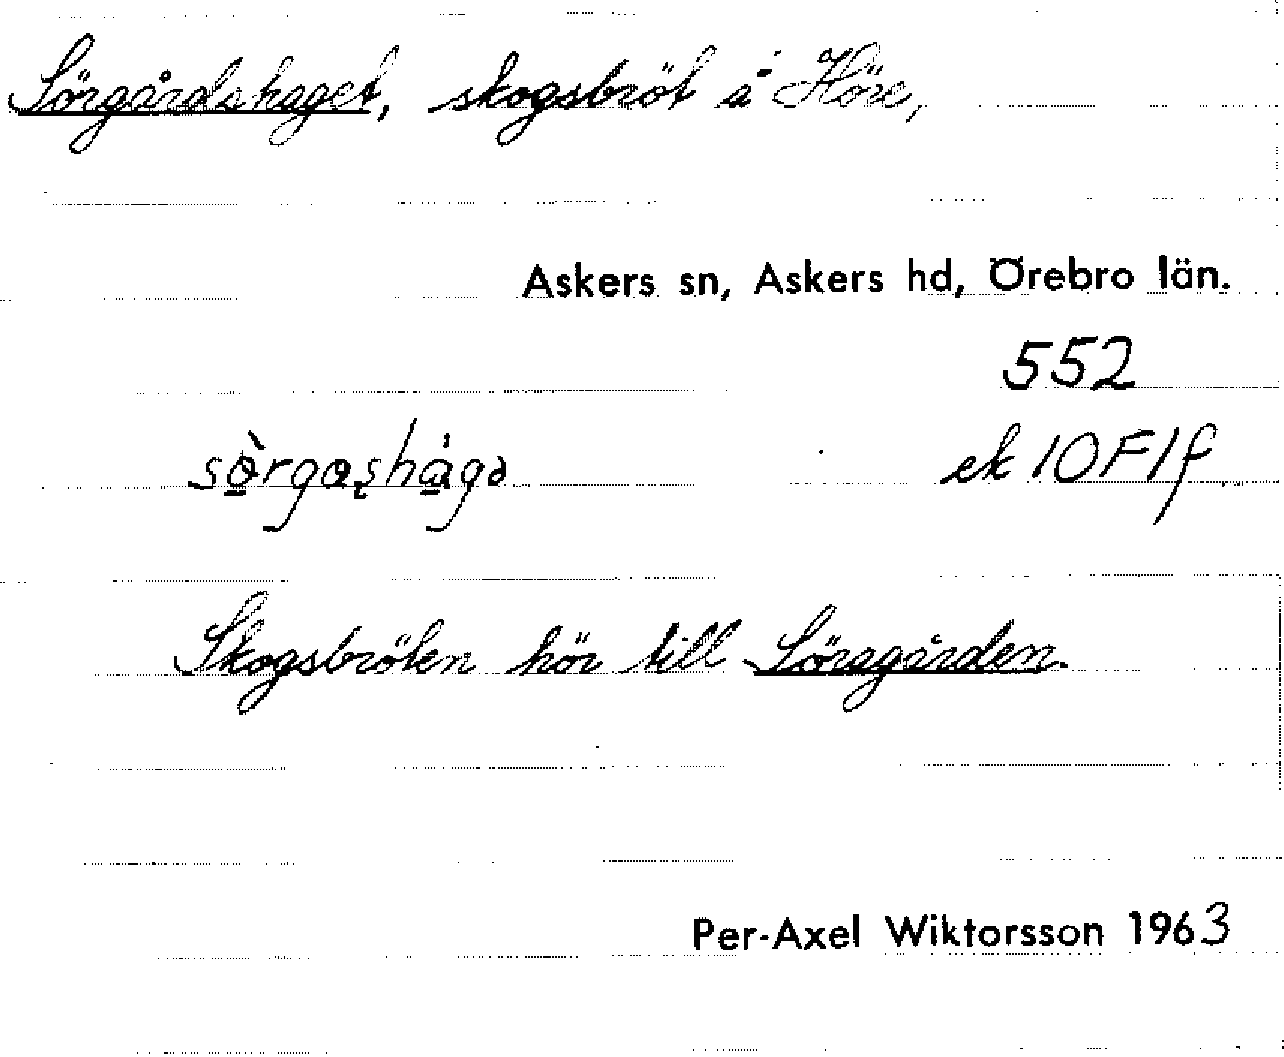 Sörgårdshaget, skogsbröt å Höre,
Askers sn, Askers hd, Örebro län.
552
ek 10F1f
Skogsbröten hör till Sörgården.
Per-Axel Wiktorsson 1963